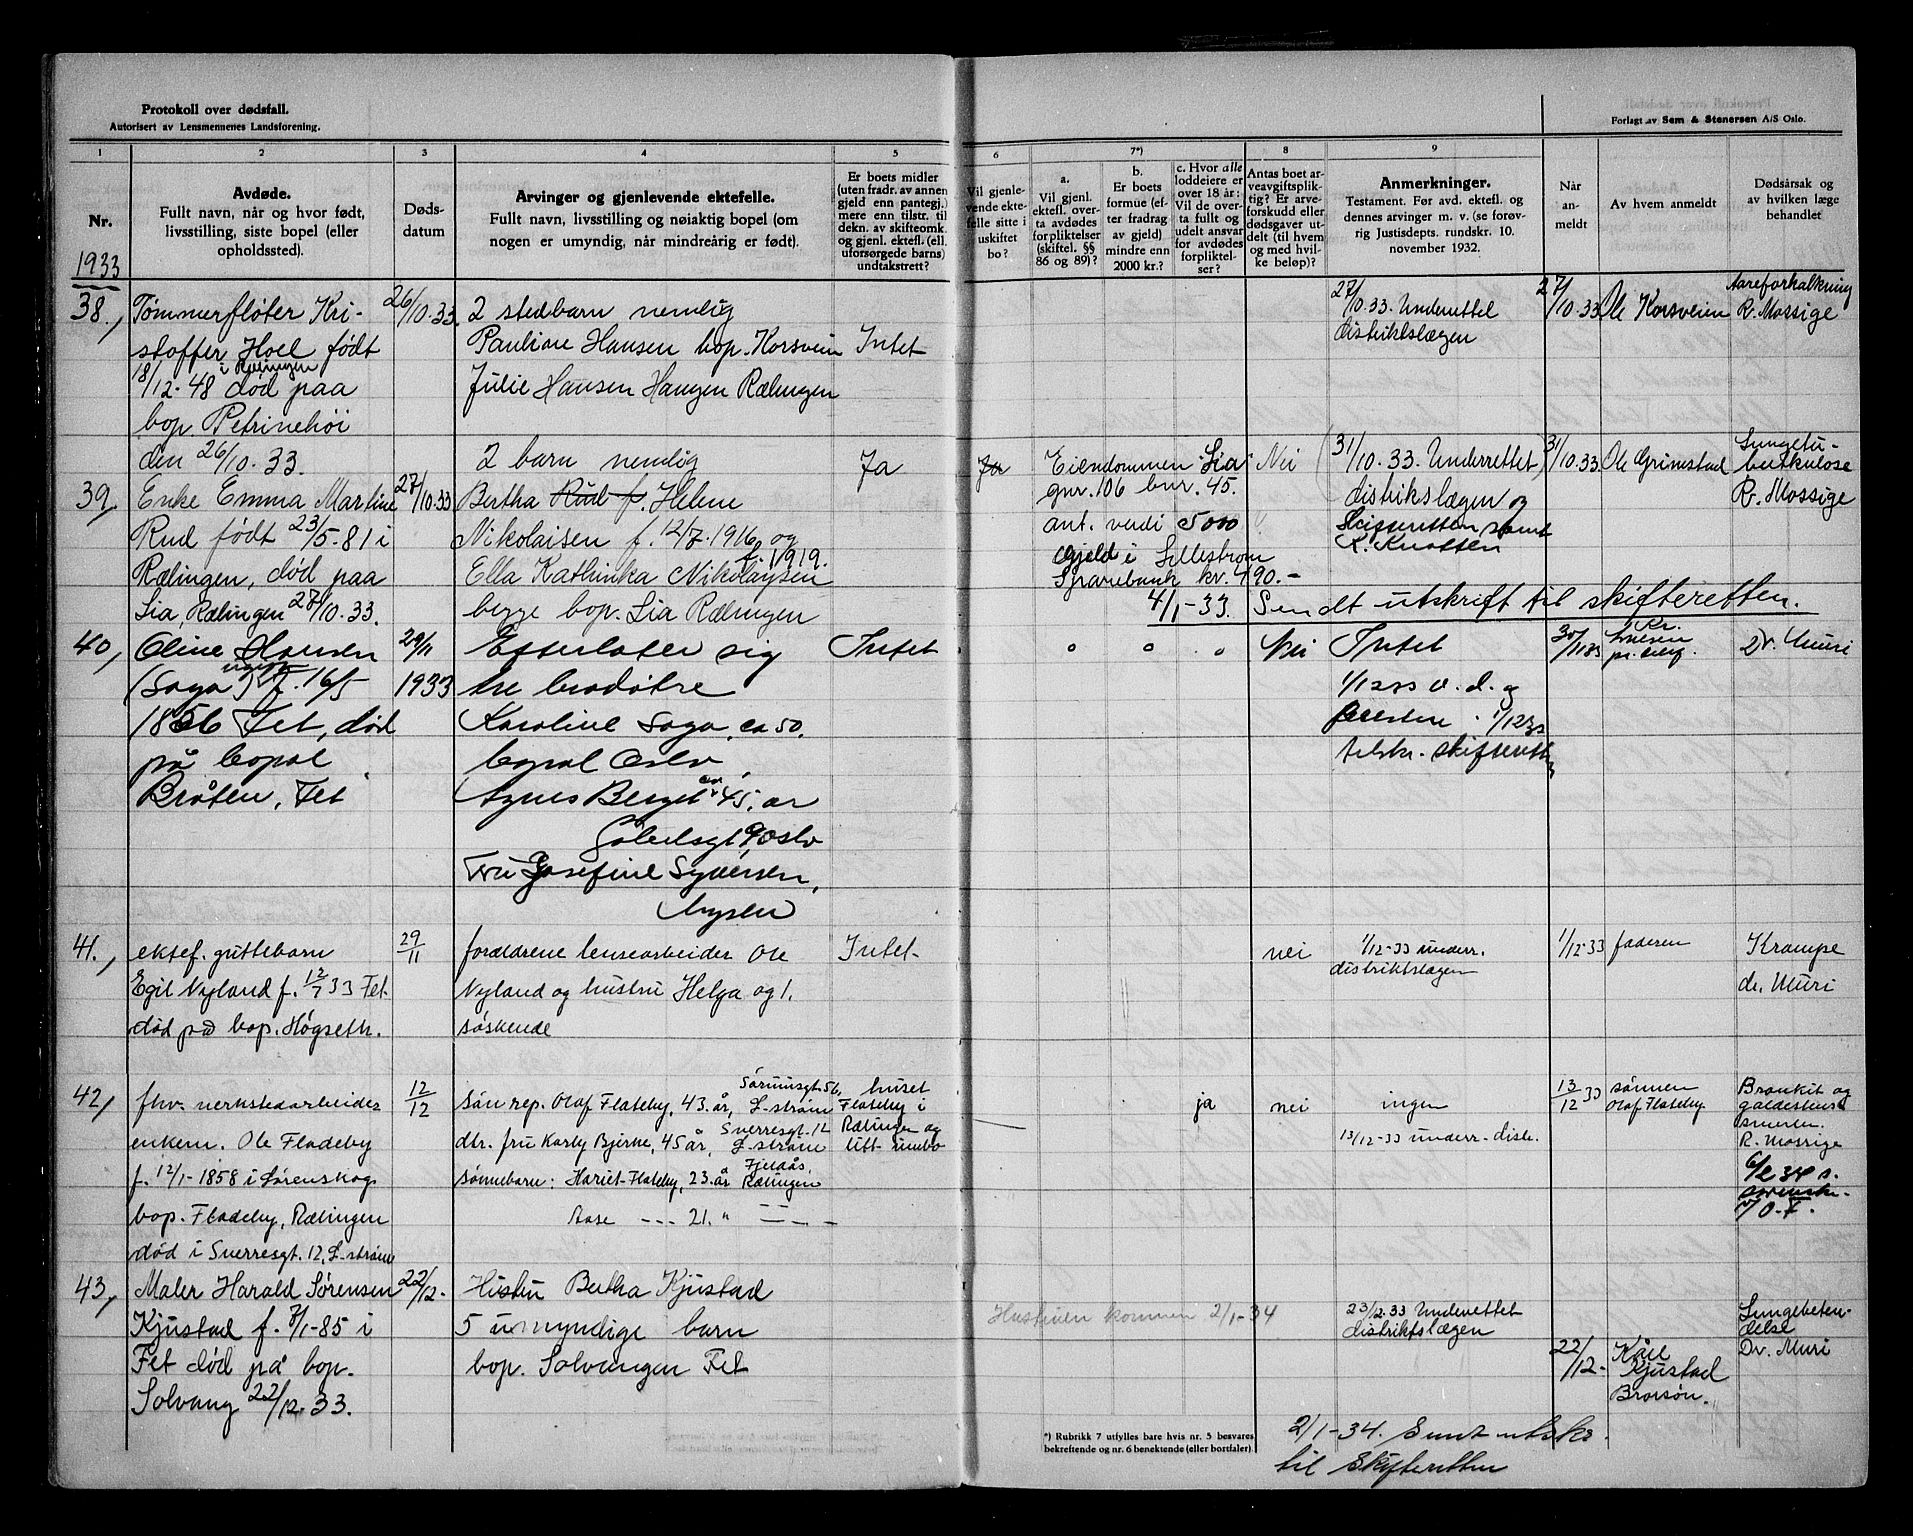 Protokoll over dødsfall.
Autorisert av Lensmennenes Landsforening.
Forlagt av Sem & Stenersen A/S Oslo.
1
2
3
4
5
6
7*)
8
9
Nr.
Avdøde.
Fullt navn, når og hvor født,
livsstilling, siste bopel (eller
opholdssted).
Døds-
datum
Arvinger og gjenlevende ektefelle.
Fullt navn, livsstilling og nøiaktig bopel (om
nogen er umyndig, når mindreårig er født).
Er boets midler
(uten fradr. av annen
gjeld enn pantegj.)
mere enn tilstr. til
dekn. av skifteomk.
og gjenl. ektef. (ell.
uforsørgede barns)
undtakstrett?
Vil gjenle-
vende ekte-
felle sitte i
uskiftet
bo?
a.
Vil gjenl.
ektefl. over-
ta avdødes
forpliktelser
(skiftel. §§
86 og 89)?
b.
Er boets
formue (ef-
ter fradrag
av gjeld)
mindre enn
2000 kr.?
c. Hvor alle
loddeiere er
over 18 år:
Vil de over-
ta fullt og
udelt ansvar
for avdødes
forpliktel-
ser?
Antas boet ar-
veavgiftsplik-
tig? Er arve-
forskudd eller
dødsgaver ut-
delt (til hvem
og med hvil-
ke beløp)?
Anmerkninger.
Testament. Før avd. ektefl. og
dennes arvinger m. v. (se forøv-
rig Justisdepts. rundskr. 10.
november 1932.
Når
an-
meldt
Av hvem anmeldt
Dødsårsak og
av hvilken læge
behandlet
1933
38.,
Tømmerfløter Kri-
stoffer Hoel født
18/12-48 i Rælingen død paa
bop. Petrinehøi
den 26/10.33.
26/10.33.
2 stedbarn nemlig
Pauline Hansen bop. Korsveien
Julie Hansen Haugen Rælingen
Intet
27/10.33. Underrettet
distriktslægen
27/10.33
Ole Korsveien
Aareforkalkning
R. Mossige
39,
Enke Emma Martine
Rud født 23/5-81 i
Rælingen, død paa
Lia, Rælingen 27/10.33.
27/10.33
2 barn nemlig
Bertha Rud f. Helene
Nikolaisen f. 12/7.1916, og
Ella Kathinka Nikolaysen f. 1919.
begge bop. Lia Rælingen
Ja
Ja
Eiendommen "Lia"
gnr. 106 bnr. 45.
ant. verdi 5000
Gjeld i Lillestrøm
Sparebank kr. 490.-
Nei
31/10.33. Underrettet
distrikslægen og
Skifteretten samt
K. Knatten
31/10.33.
Ole Grimstad
Lungetu-
berkulose
R. Mossige
4/1-33. Sendt utskrift til skifteretten.
40,
Oline Hansen
(Saga) ugift f. 16/5
1856 Fet, død
på bopel
Bråten, Fet
29/11
1933
Efterlater sig
tre brodøtre
Karoline Saga, ca 50.
bopel Oslo,
Agnes Berget ca 45. år
Fru Josefine Syversen,
Mysen
Intet
Nei
Intet
1/12 33 u. d. og
presten . 1/12 33
utskr. skifteretten
30/11 33
Dr. Muri
41.,
ektef. guttebarn
Egil Nyland f. 12/7 33 Fet.
død på bop. Høgseth.
29/11
foreldrene lensearbeider Ole
Nyland og hustru Helga og 1.
søskende
Intet-
nei
1/12-33 underr.
distriktslægen
1/12-33
faderen
Krampe
dr. Muri
42,
fhv. verkstedarbeider
enkem. Ole Flateby
f. 12/1-1858 i Lørenskog
bop. Flateby, Rælingen
død i Sverresgt. 12, L-strøm
12/12
Søn rep. Olaf Flateby, 43. år, Sørumsgt. 56, L-strøm
dtr. fru Karly Bjerke, 45 år, Sverresgt. 12 L-strøm
sønnebarn: Hariet Flateby, 23. år Fjeldås, Rælingen
Aase --- 21. " -- --
huset
Flateby i
Rælingen og
litt innbo
ja
nei
ingen
13/12-33 underr. distr.
13/12 33
sønnen
Olaf Flateby.
Bronkit og
galdestens
smerter.
R. Mossige
6/2 34 s.
43,
Maler Harald Sørensen
Kjustad f. 8/1-85 i
Fet død på bop.
Solvang 22/12.33.
22/12-
Hustru Bertha Kjustad
5 umyndige barn
bop. Solvangen Fet
Hustruen kommer 2/1-34
23/12.33 Underrettet
distriktslægen
22/12-
Kåre
Kjustad
Brorsøn.
Lungebeten-
delse
Dr. Muri
*) Rubrikk 7 utfylles bare hvis nr. 5 besvares
bekreftende og nr. 6 benektende (eller bortfaler).
2/1-34. Sendt utskr.
til Skifteretten